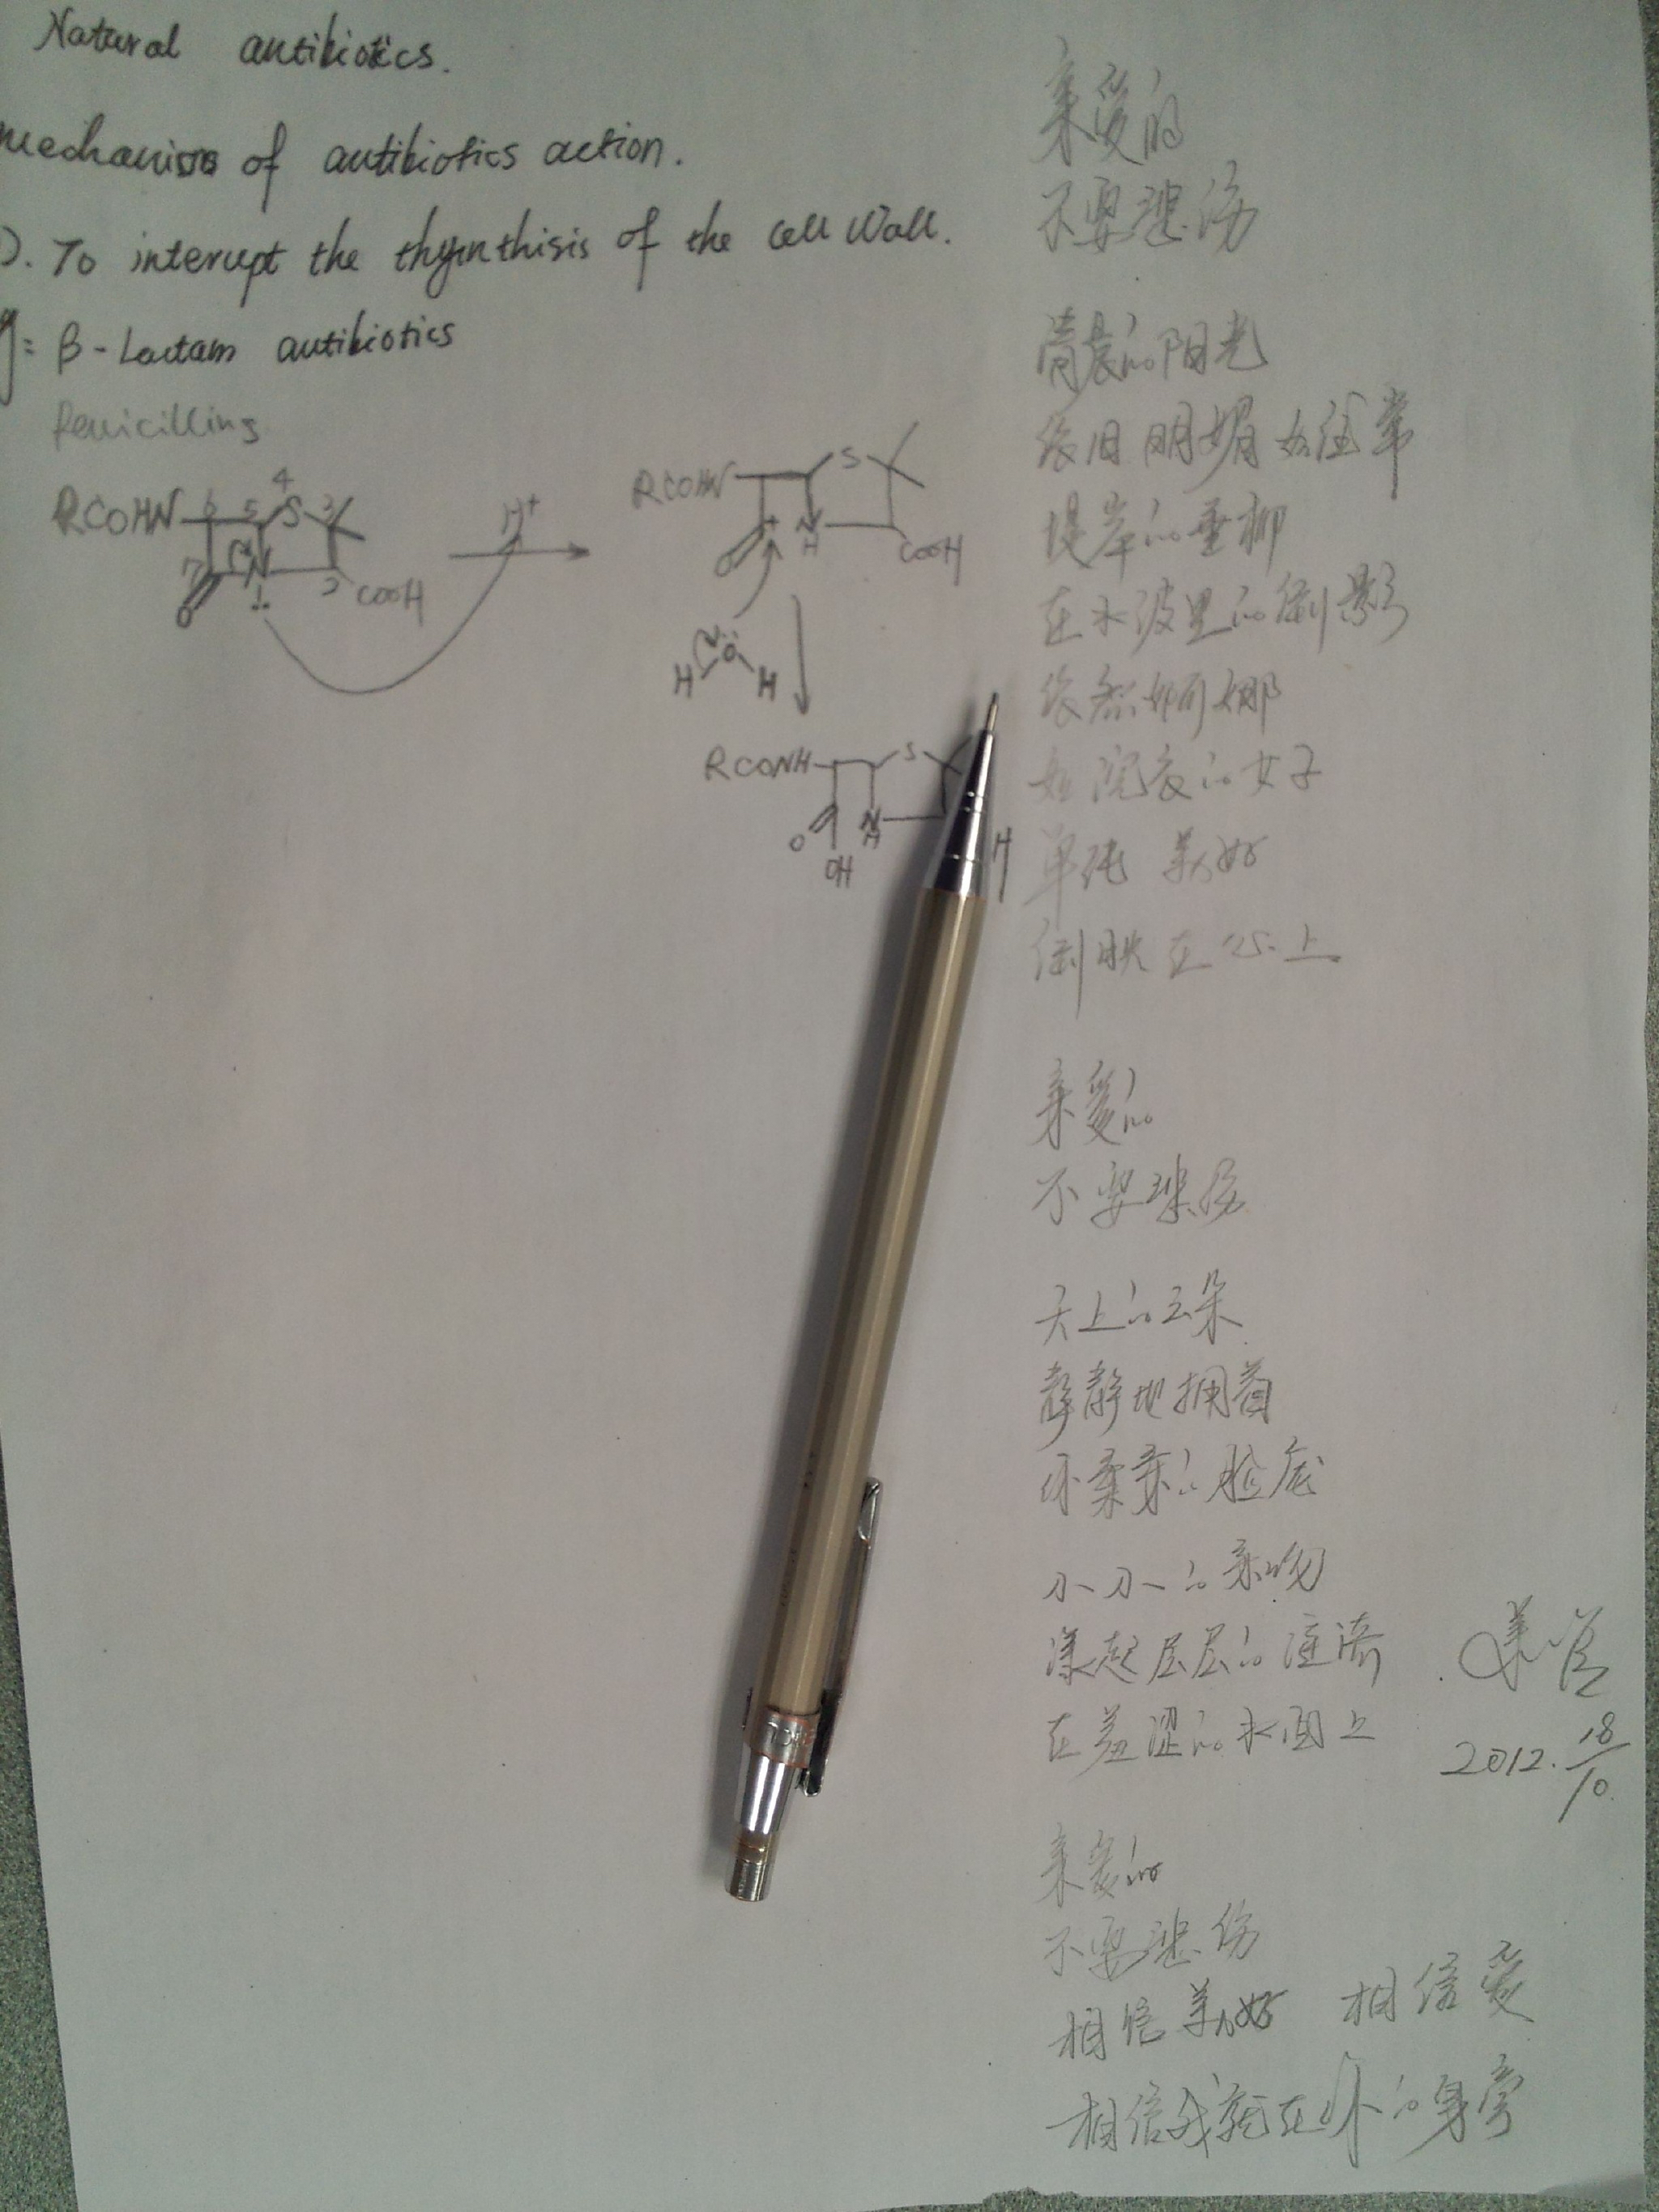 Natural antibiotics.
mechanism of antibiotics action.
). To interupt the thynthisis of the cell Wall.
g: β-Lactam antibiotics
Penicilling
RCOHN 6 5 4 S 3
7 N
O 1 2 COOH
H+
RCOHN S
O + N H COOH
H O H
RCONH S
O N H
OH H
亲爱的
不要悲伤
清晨的阳光
依旧明媚如往常
堤岸的垂柳
在水波里的倒影
依然婀娜
如浣衣的女子
单纯 美好
倒映在心上
亲爱的
不要悲伤
天上的云朵
静静地拥着
你柔柔的脸庞
小小的亲吻
漾起层层的涟漪
在羞涩的水面上
2012. 18/10.
亲爱的
不要悲伤
相信美好 相信爱
相信我就在你的身旁